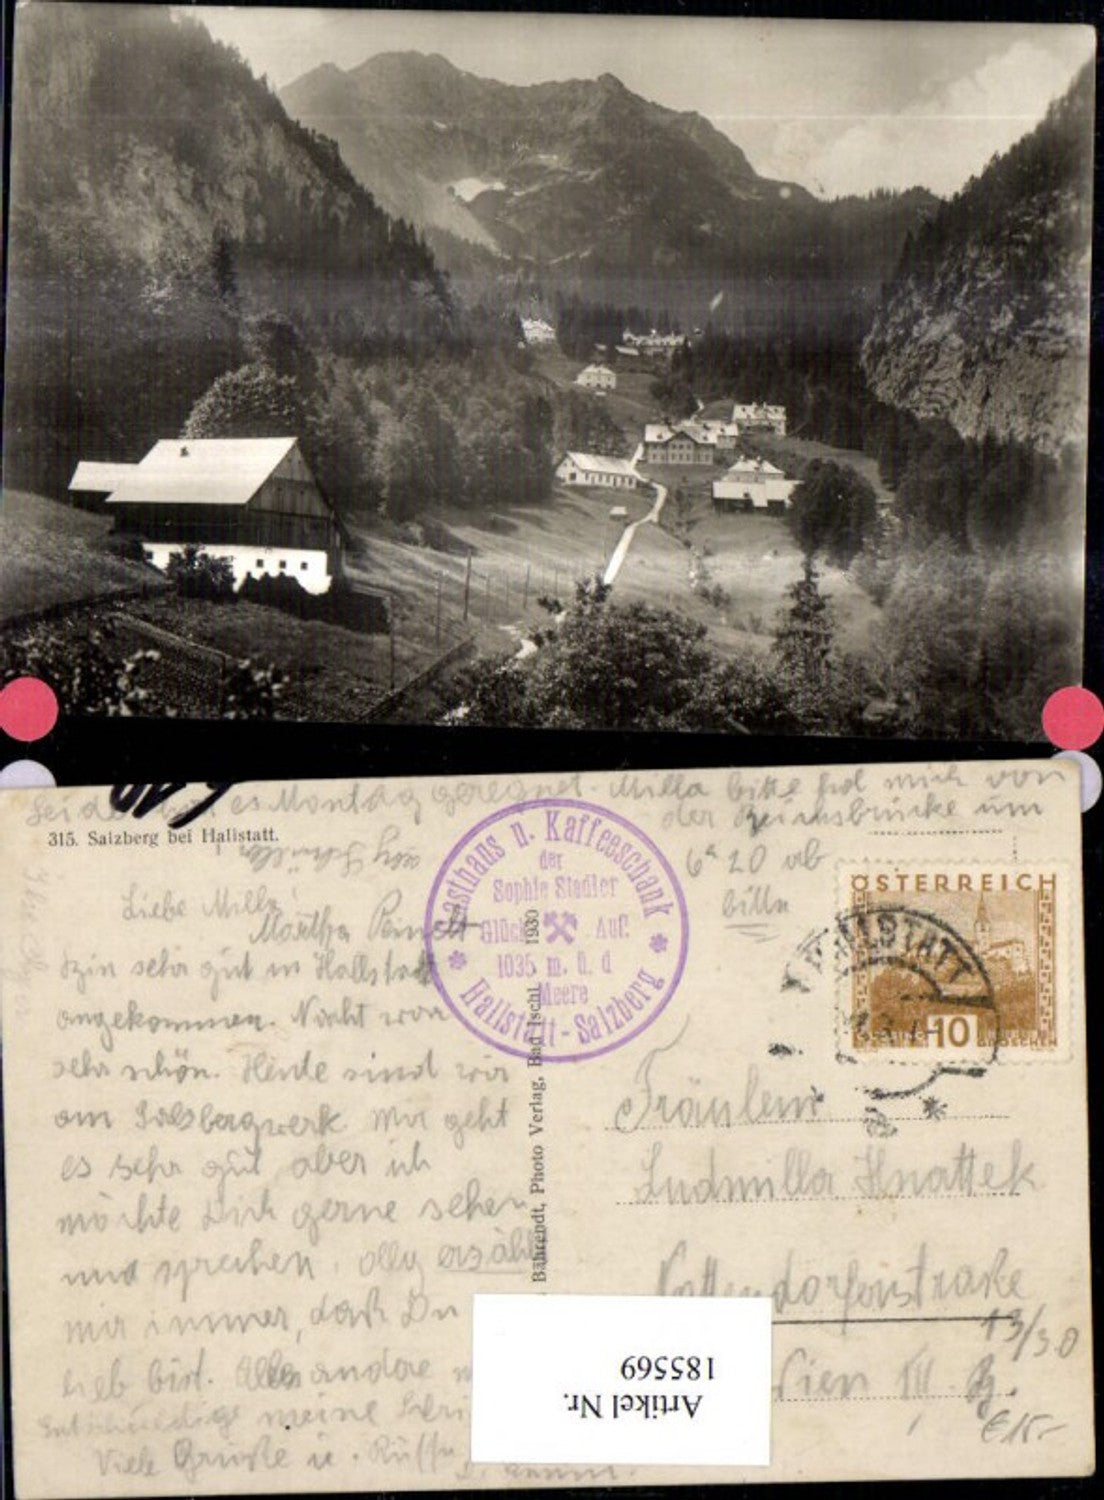 es Montag geregnet. Milla bitte hol mich von
der Reichsbrücke um
6h 20 ab
bitte
315. Salzberg bei Hallstatt.
Liebe Milla
sehr gut in Hallstatt
angekommen. Nicht war
sehr schön. Heute sind wir
am Salzbergwerk Mir geht
es sehr gut, aber ich
möchte Dich gerne sehen
und sprechen. Olly erzählt
mir immer, daß Du
lieb bist. Alles andere
meine
Viele Grüße u.
Gasthaus u. Kaffeeschank
der
Sophie Stadler
Glück Auf!
1035 m. ü. d
Meere
Hallstatt-Salzberg
Bährendt, Photo Verlag, Bad Ischl 1930
ÖSTERREICH
HALLSTATT
10
GROSCHEN
Fräulein
Ludmilla Hnattek
13/30
Wien III.
€ 15.-
Artikel Nr.
185569